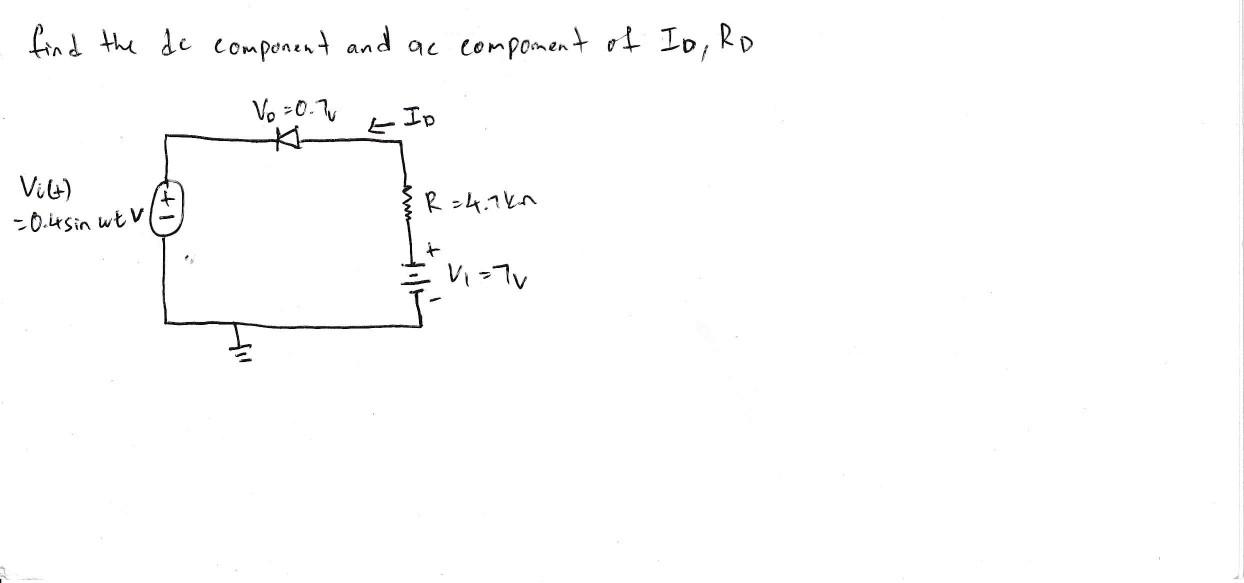 find the dc component and ac compoment of ID, RD
VD =0.7v
← ID
Vi(t)
=0.4sin wt V
+
-
R =4.7kΩ
+
V1 =7v
-